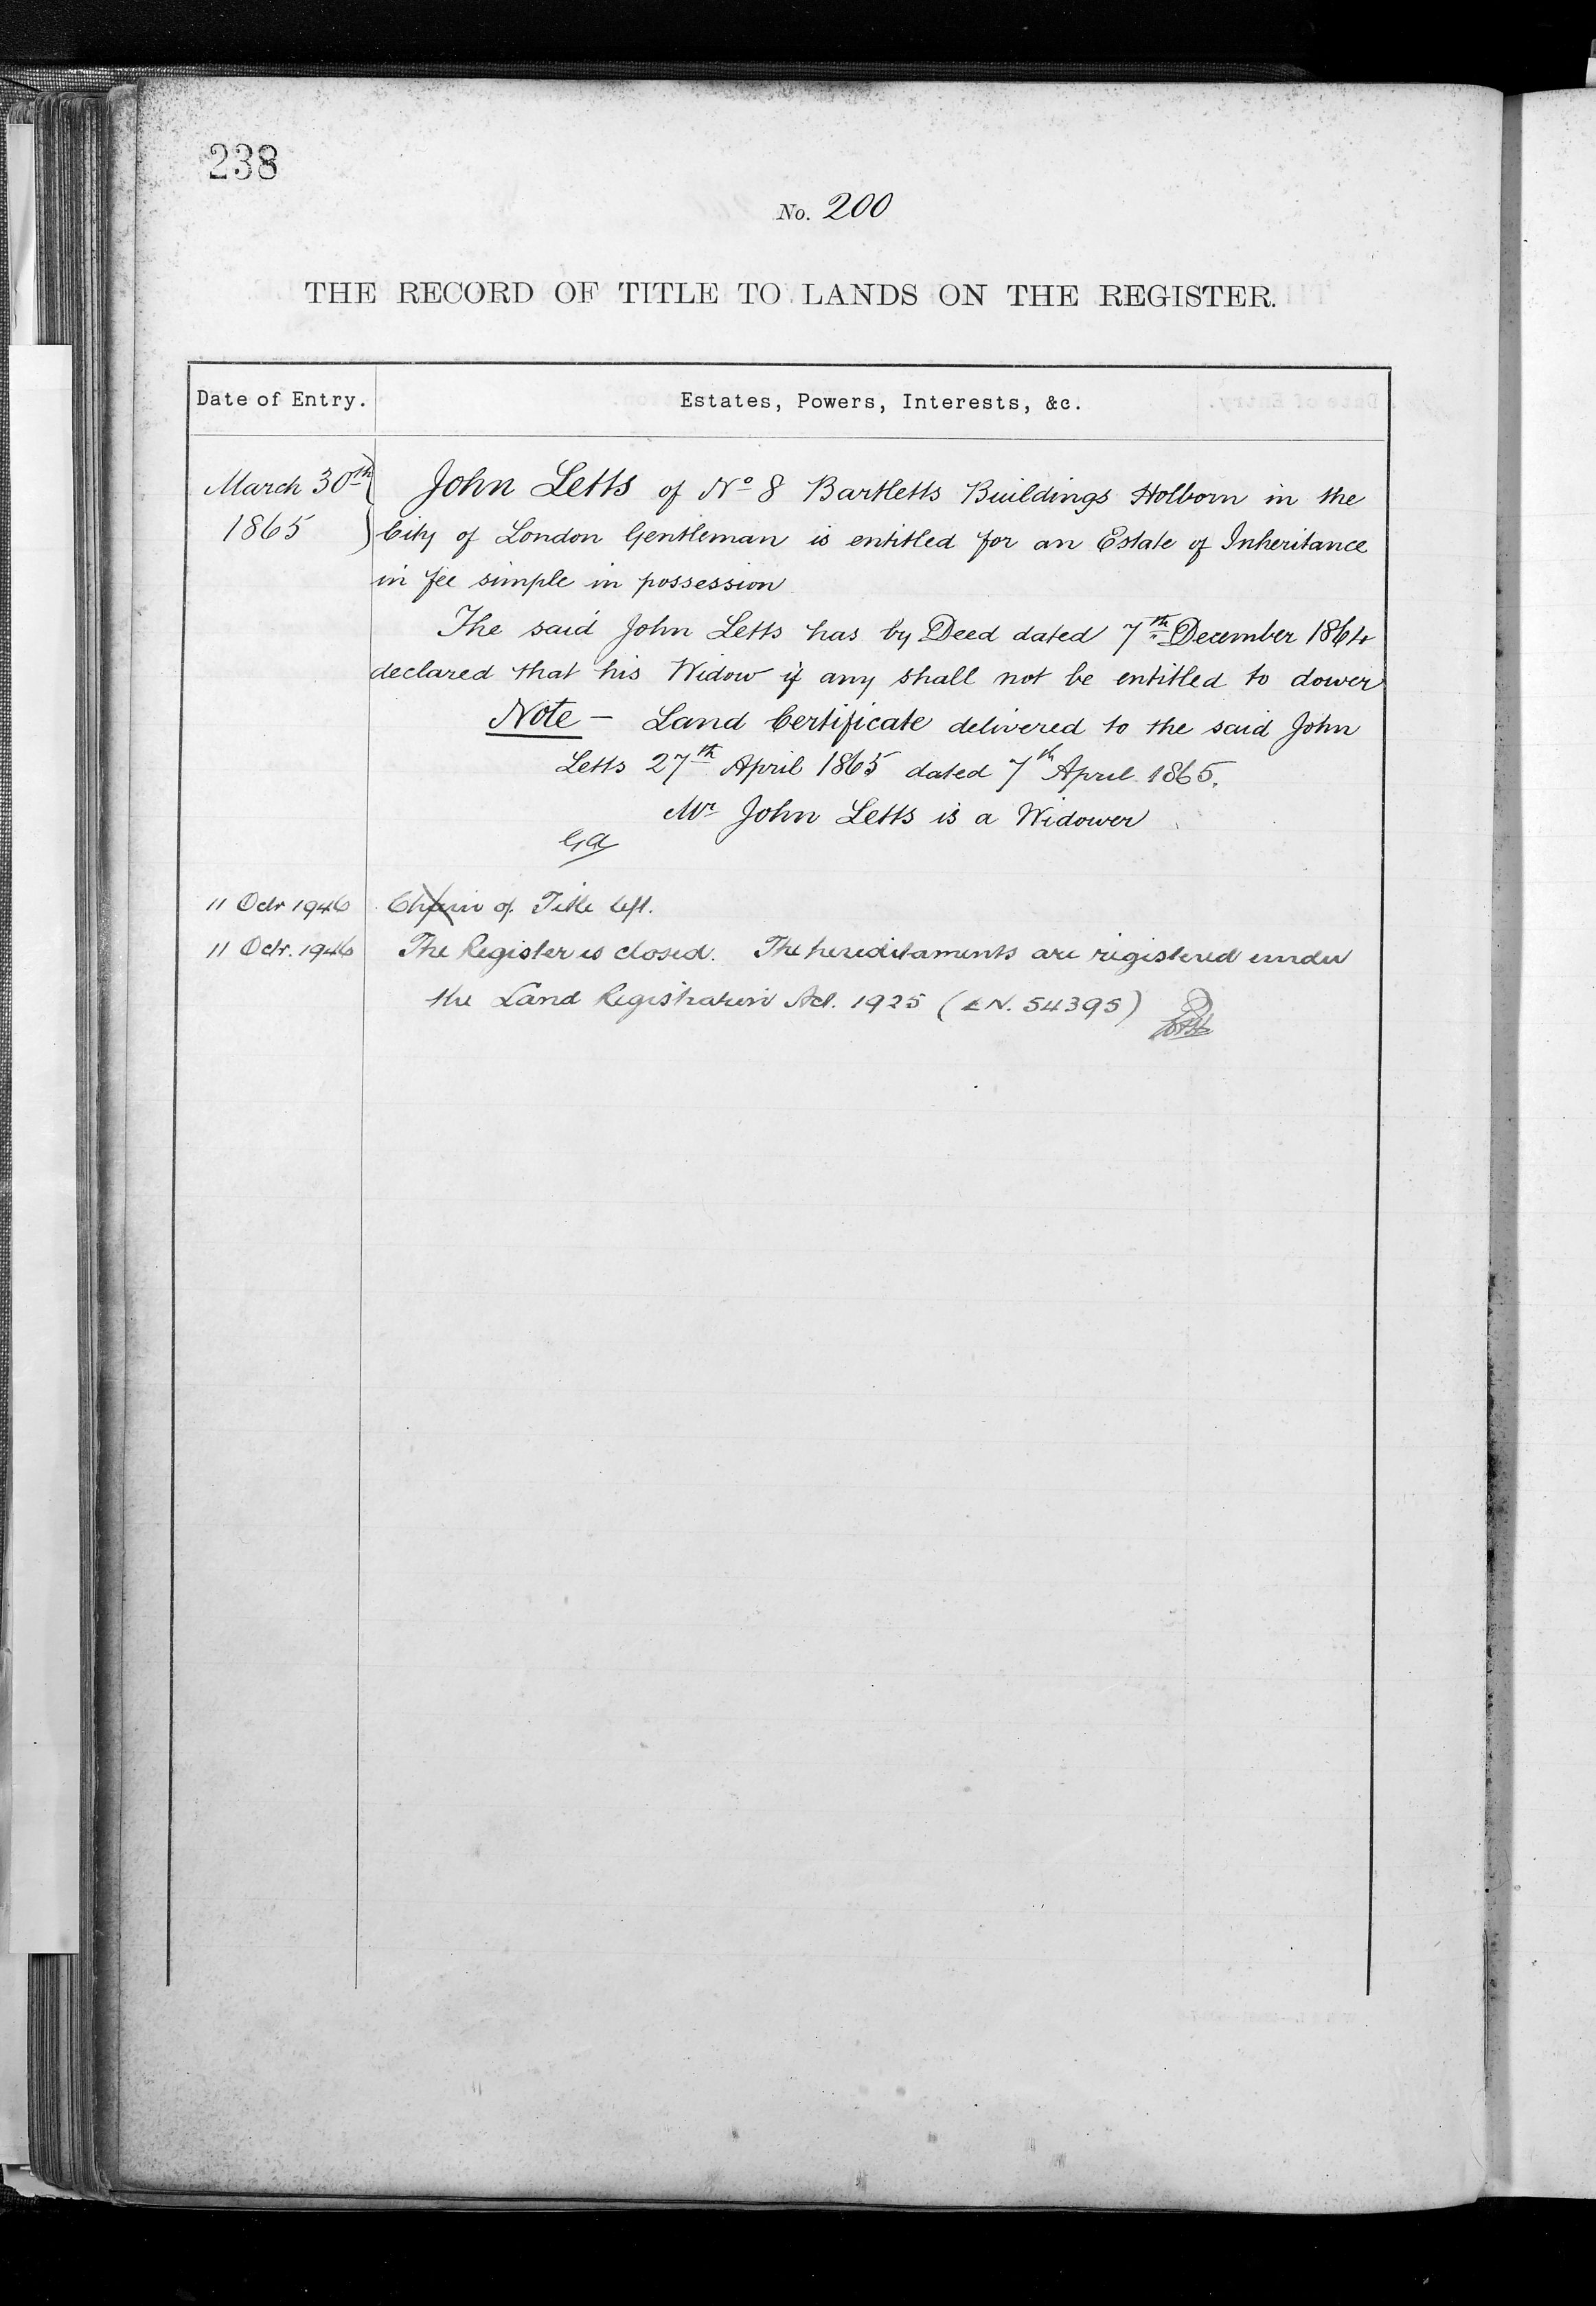 238
No. 200
THE RECORD OF TITLE TO LANDS ON THE REGISTER.
Date of Entry. Estates, Powers, Interests, &c.
March 30th John Letts of No 8 Bartletts Buildings Holborn in the
1865 City of London Gentleman is entitled for an Estate of Inheritance
in fee simple in possession
The said John Letts has by Deed dated 7th December 1864
declared that his Widow if any shall not be entitled to dower
Note – Land Certificate delivered to the said John
Letts 27th April 1865 dated 7th April 1865.
Mr John Letts is a Widower
11 Octr 1946 of Title left.
11 Octr. 1946 The Register is closed. The hereditaments are registered under
the Land Registration Act. 1925 (LN. 54395)